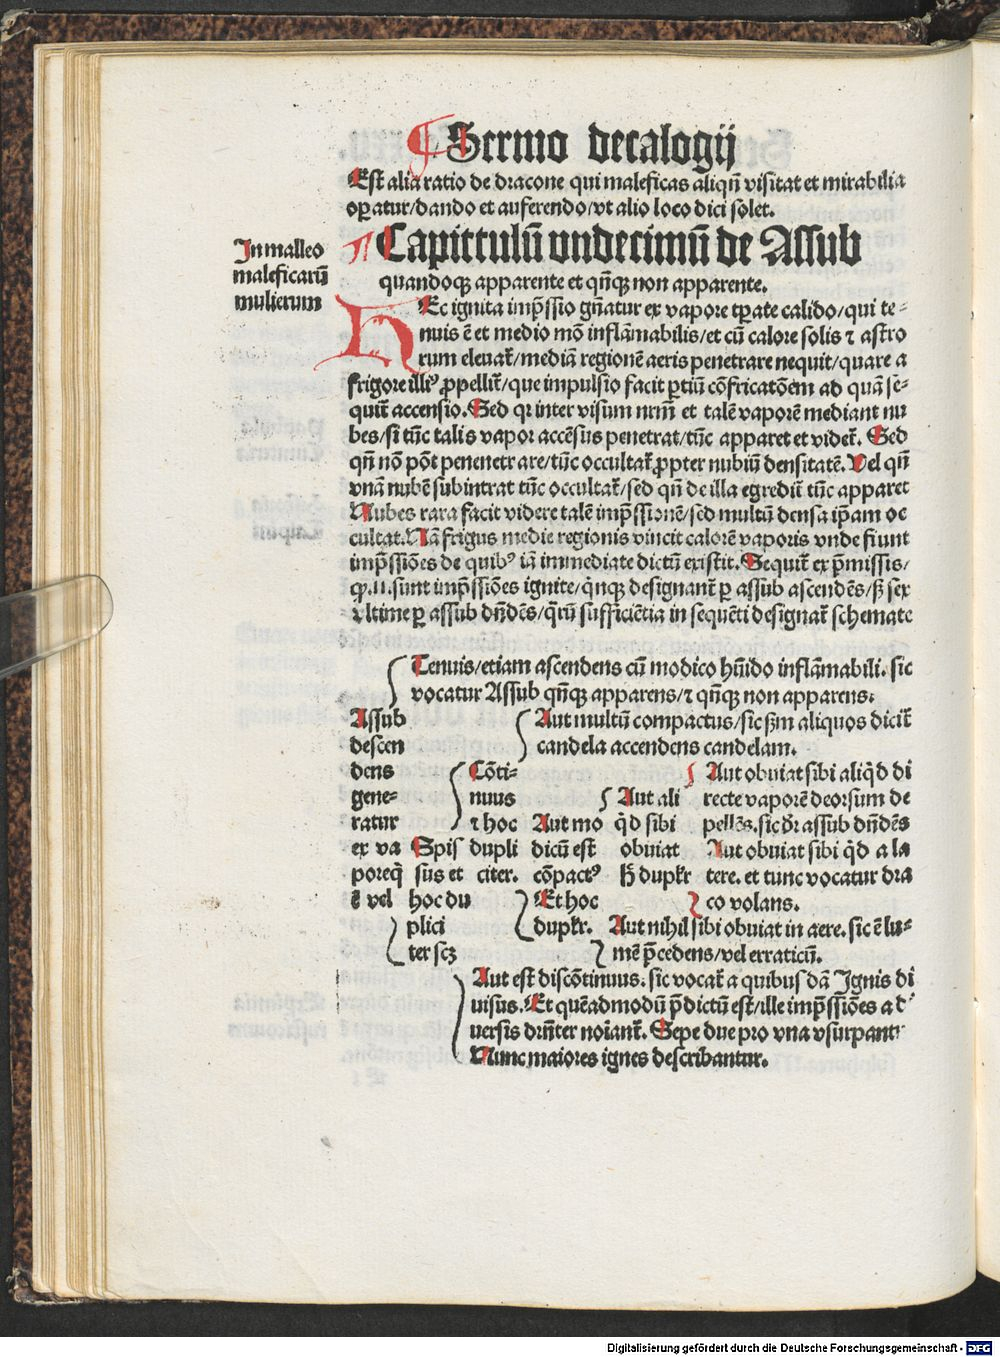 ¶ Sermo decalogij
Est alia ratio de dracone qui maleficas aliqñ visitat et mirabilia
opatur/dando et auferendo/vt alio loco dici solet.
¶ Capittulū vndecimū de Assub
In malleo
maleficarū
mulierum
quandoqꝫ apparente et qñqꝫ non apparente.
HEc ignita imp̄ssio gñatur ex vapore tꝑate calido/qui te-
nuis ē et medio mō inflāmabilis/et cū calore solis ⁊ astro
rum eleuat̄/mediā regionē aeris penetrare nequit/quare a
frigore illiꝰ ꝓpellit̄/que impulsio facit ꝑtiū cōfricatōem ad quā se-
quit̄ accensio. Sed qꝛ inter visum nrm̄ et talē vaporē mediant nu
bes/si tūc talis vapor accēsus penetrat/tūc apparet et videt̄. Sed
qñ nō pōt penenetrare/tūc occultat̄ ꝓpter nubiū densitatē. Vel qñ
vnā nubē subintrat tūc occultat̄/sed qñ de illa egredit̄ tūc apparet
Nubes rara facit videre talē imp̄ssionē/sed multū densa ip̄am oc
cultat. Nā frigus medie regionis vincit calorē vaporis vnde fiunt
imp̄ssiōes de quibꝰ iā immediate dictū existit. Sequit̄ ex p̄missis/
ꝙ.11.sunt imp̄ssiōes ignite/qͥnqꝫ designant̄ ꝑ assub ascendēs/ꝫ sex
vltime ꝑ assub dñdēs/qͣrū sufficiētia in sequēti designat̄ schemate
Tenuis/etiam ascendens cū modico hūido inflāmabili. sic
vocatur Assub qñqꝫ apparens/⁊ qñqꝫ non apparens.
Assub
descen
dens
gene-
ratur
ex va
poreqͥ
ē vel
Spis
sus et
hoc du
plici
ter scꝫ
Cōti-
nuus
⁊ hoc
dupli
citer.
Aut multū compactus/sic ẜm aliquos dicit̄
candela accendens candelam.
Aut mo
dicū est
cōpactꝰ
Et hoc
duplr̄.
Aut ali
qͥd sibi
obuiat
ꝫ duplr̄
Aut obuiat sibi aliqͥd di
recte vaporē deorsum de
pellēs. sic dr̄ assub dñdēs
Aut obuiat sibi qͥd a la
tere. et tunc vocatur dra
co volans.
Aut nihil sibi obuiat in aere. sic ē lu-
mē p̄cedens/vel erraticū.
Aut est discōtinuus. sic vocat̄ a quibusdā Ignis di
uisus. Et quēadmodū p̄dictū est/ille imp̄ssiōes a dꝰ
uersis drn̄ter noīant̄. Sepe due pro vna vsurpant̄
Nunc maiores ignes describantur.
Digitalisierung gefördert durch die Deutsche Forschungsgemeinschaft - DFG